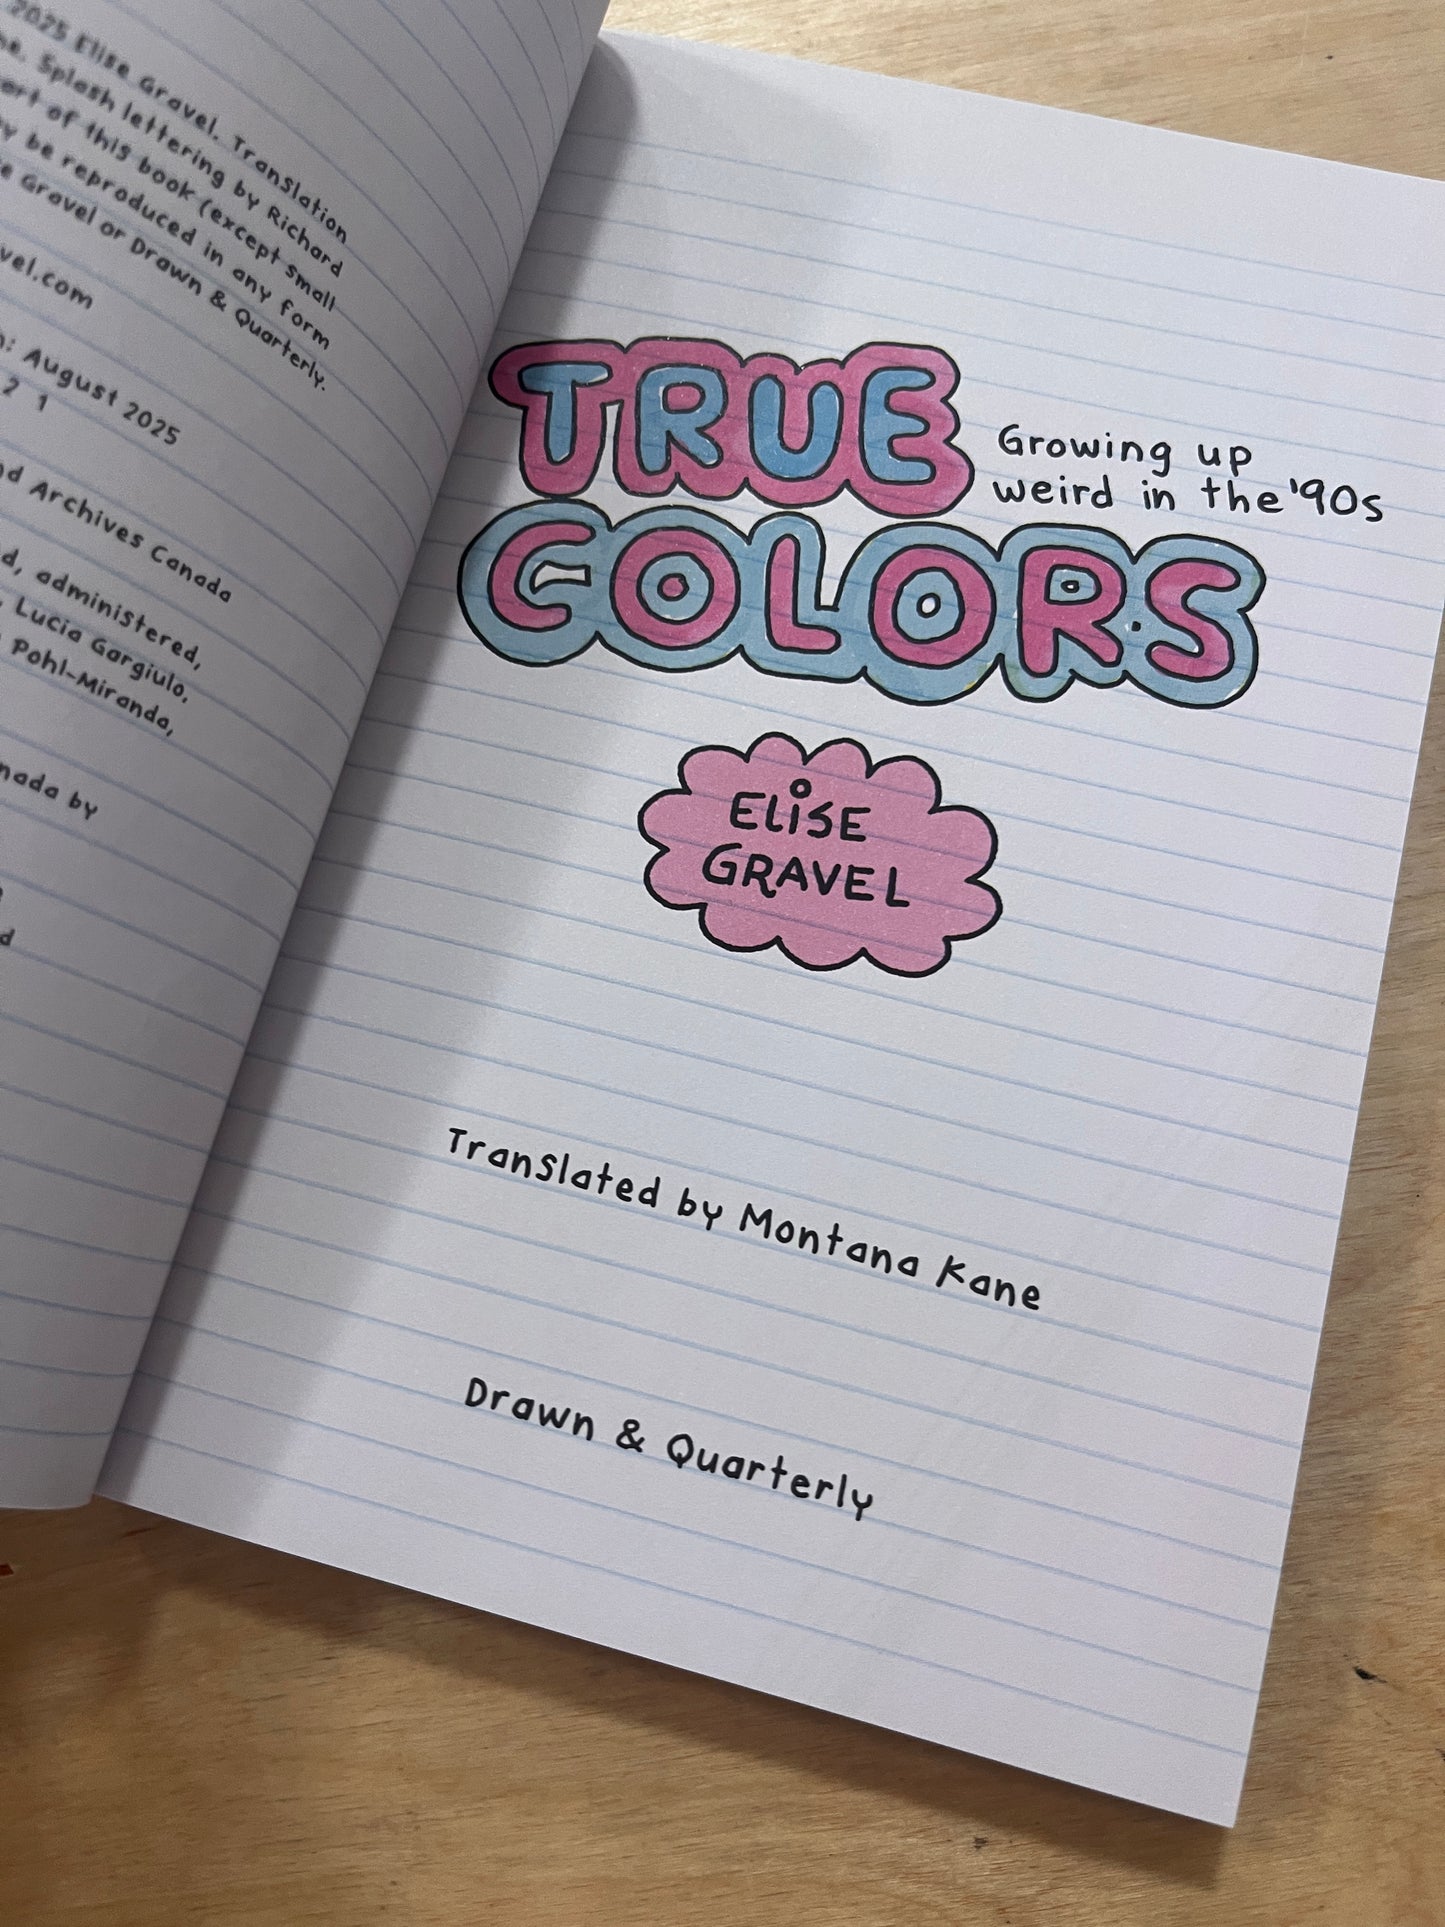 2025 Elise Gravel. Translation
ne. Splash lettering by Richard
art of this book (except small
y be reproduced in any form
e Gravel or Drawn & Quarterly.
vel.com
n: August 2025
2 1
nd Archives Canada
d, administered,
Lucia Gargiulo,
Pohl-Miranda,
nada by
d
TRUE
Growing up
weird in the '90s
COLORS
ELISE
GRAVEL
Translated by Montana Kane
Drawn & Quarterly